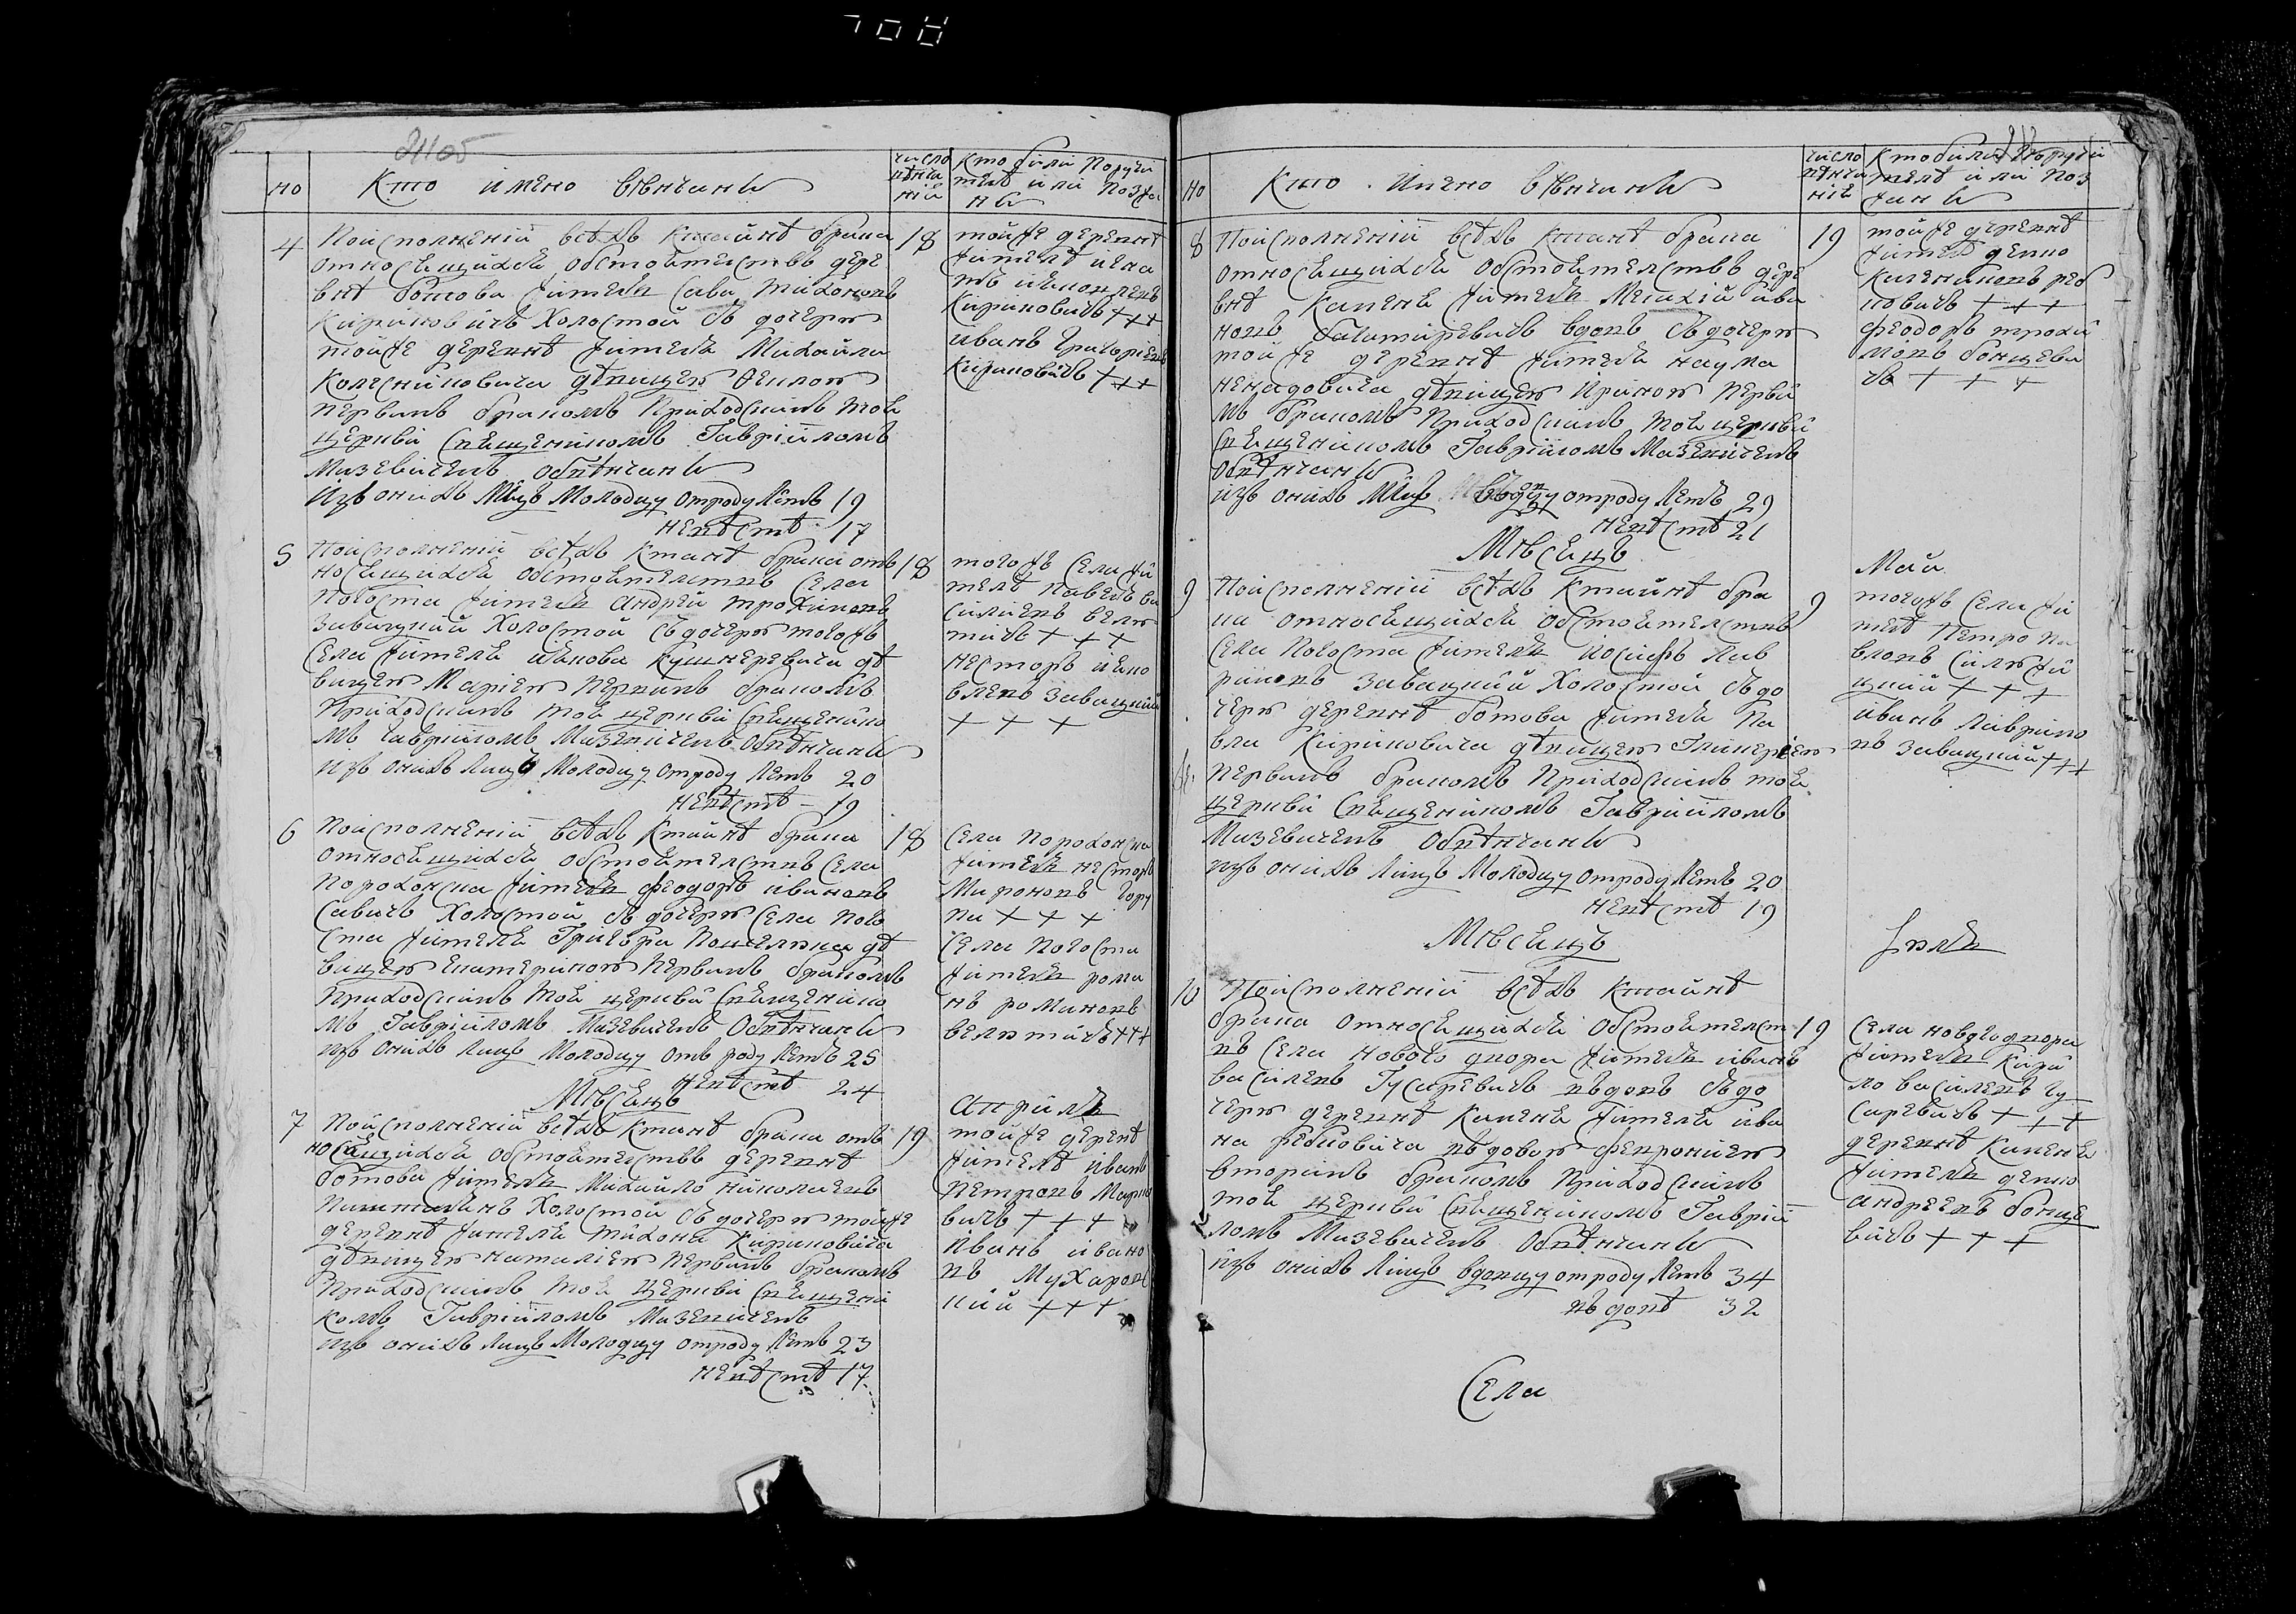 но
Кто имено вѣнчаны
число
вѣнча
нія
Кто были поручи
тели или поэжа
ны
4
По исполненіи всѣхъ к тайнѣ брака
относящихся обстоятелствъ дере
внѣ Ботова житель Сава Тихоновъ
Кириковичъ холостой съ дочерю
тойже деревнѣ жителя Михайла
Колесниковича дѣвицею Феклою
первымъ бракомъ приходскимъ тоя
церкви священникомъ Гавріиломъ
Мазевичемъ обвѣнчаны
изъ онихъ лицъ молодцу отроду летъ 19
невѣстѣ 17
18
тойже деревнѣ
жителѣ
Кириковичъ +++
иванъ Григоріевъ
Кириковичъ +++
5
По исполненіи всѣхъ к танѣ брака отъ
носящихся обстоятелствъ села
Погоста житель андрей трохимовъ
Завацкий холостой съ дочерю тогожъ
села жителя якова Кушнеревича дѣ
вицею Маріею первымъ бракомъ
приходскимъ тоя церкви священнико
мъ Гавріиломъ Мазевичемъ обвѣнчаны
изъ онихъ лицъ молодцу отроду летъ 20
невѣстѣ – 19
18
тогожъ села жи
телѣ Павелъ ва
силіевъ Велю
тичъ + + +
несторъ яко
влевъ Завацкий
+ + +
6
По исполненіи всѣхъ к тайнѣ брака
относящихся обстоятелствъ села
Порохонска житель феодоръ ивановъ
Савичъ холостой съ дочерю села Пого
ста жителя Григора дѣ
вицею екатериною первымъ бракомъ
приходскимъ тоя церкви священнико
мъ Гавріиломъ Мазевичемъ обвѣнчаны
изъ онихъ лицъ молодцу отъ роду летъ 25
невѣстѣ 24
18
села Порохонска
житель несторъ
Мироновъ
+ + +
села Погоста
житель рома
нъ романовъ
Велютичъ +++
Мѣсяцъ
априль
7
По исполненіи всѣхъ к танѣ брака отъ
носящихся обстоятелствъ деревнѣ
Ботова житель Михайло николаевъ
холостой съ дочерю тойже
деревнѣ жителя тихона Кириковича
дѣвицею наталіею первымъ бракомъ
приходскимъ тоя церкви священни
комъ Гавріиломъ Мазевичемъ
изъ онихъ лицъ молодцу отроду летъ 23
невѣстѣ 17
19
тойже деревнѣ
жителѣ иванъ
петровъ
вичъ + + +
иванъ ивано
въ
кий + + +
но
Кто имено вѣнчаны
число
вѣнча
нія
Кто были поручи
тели или поэ
жаны
8
По исполненіи всѣхъ к танѣ брака
относящихся обстоятелствъ дере
внѣ Каменя житель ива
новъ вдовъ съ дочерю
тойже деревнѣ жителя наума
ненадовича дѣвицею ириною первы
мъ бракомъ приходскимъ тоя церкви
священикомъ Гавріиломъ Мазевичемъ
обвѣнчаны
изъ онихъ лицъ вдовцу отроду летъ 29
невѣстѣ 21
19
тойже деревнѣ
жителѣ
новичъ + + +
феодоръ трохи
мовъ Бонцеви
чъ + + +
Мѣсяцъ
Май
9
По исполненіи всѣхъ к тайнѣ бра
ка относящихся обстоятелствъ
села Погоста житель иосифъ лав
риновъ Завацкий холостой съ до
черю деревнѣ Ботова жителя Па
вла Кириковича дѣвицею Гликеріею
первымъ бракомъ приходскимъ тоя
церкви священикомъ Гавріиломъ
Мазевичемъ обвѣнчаны
изъ онихъ лицъ молодцу отроду летъ 20
невѣстѣ 19
9
тогожъ села жи
телѣ Петро па
вловъ
цкий + + +
иванъ лаврино
въ Завацкий +++
Мѣсяцъ
10
По исполненіи всѣхъ к тайнѣ
брака относящихся обстоятелст
въ села Нового двора житель иванъ
василевъ Гусаревичъ вдовъ съ до
черю деревнѣ Каменя жителя ива
на вдовою февроніею
вторымъ бракомъ приходскимъ
тоя церкви священикомъ Гавріи
ломъ Мазевичемъ обвѣнчаны
изъ онихъ лицъ вдовцу отроду летъ 34
вдовѣ 32
19
села нового двора
житель Кири
ло василевъ Гу
саревичъ + + +
деревнѣ Каменя
житель
андреевъ Бонце
вичъ + + +
Села